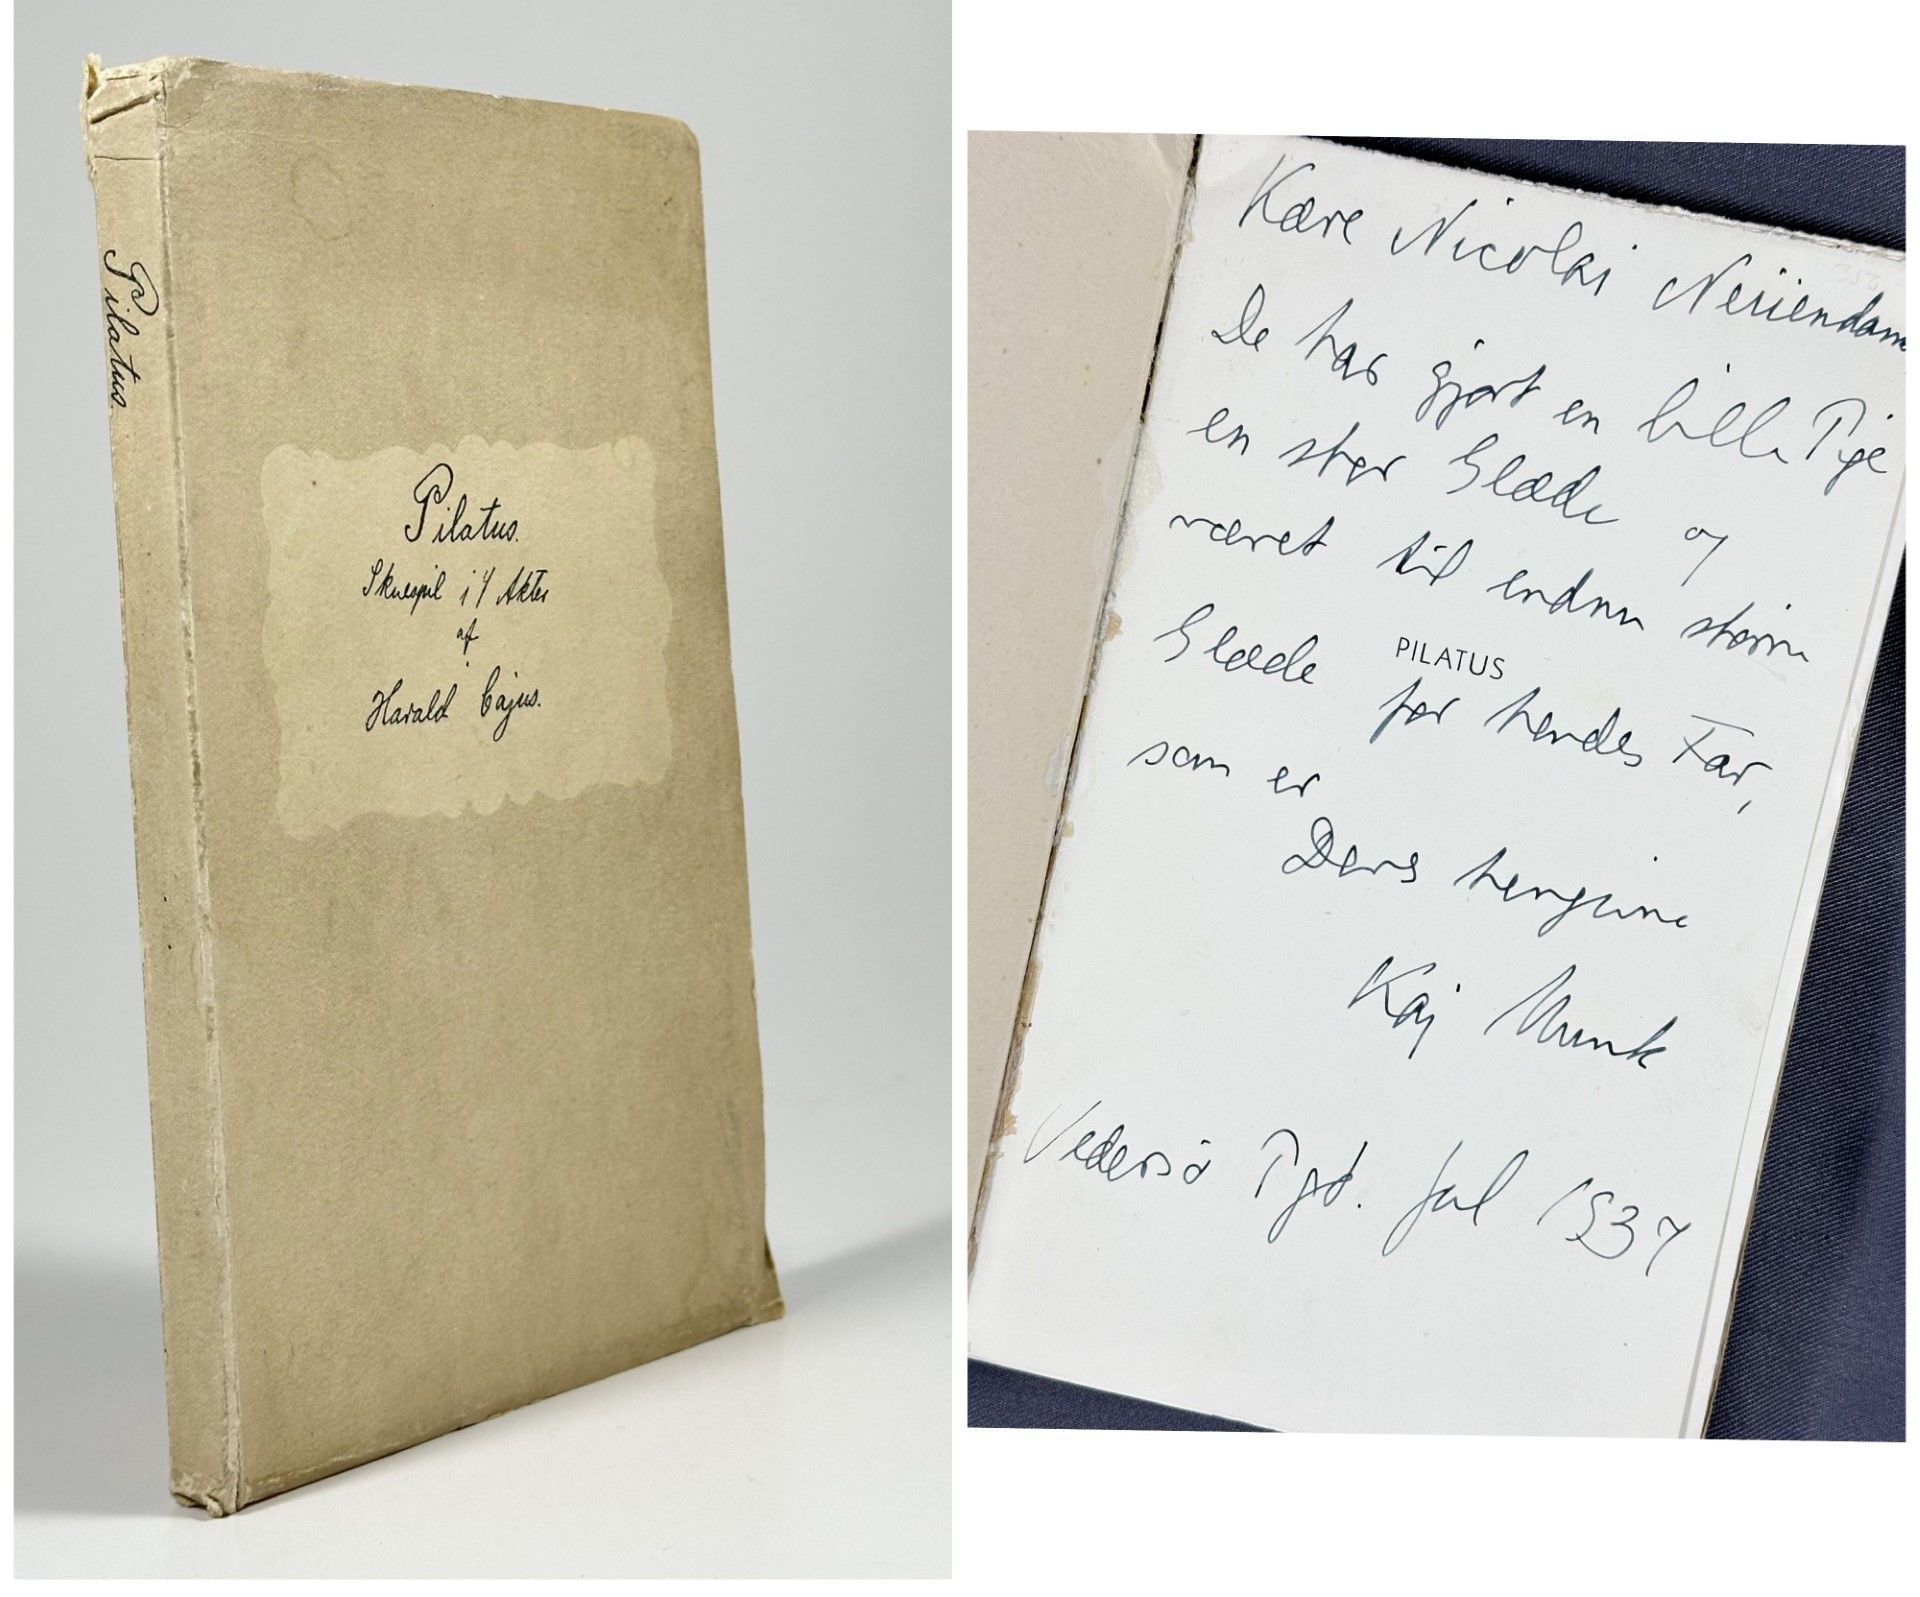 Pilatus.
Pilatus.
Skuespil i 4 Akter
af
Harald Cajus.
Kære Nicolai Neiiendam
De har gjort en lille Pige
en stor Glæde og
været til endnu større
Glæde for hendes Far,
PILATUS
som er
Deres hengivne
Kaj Munk
Vedersø Pgd. Jul 1937